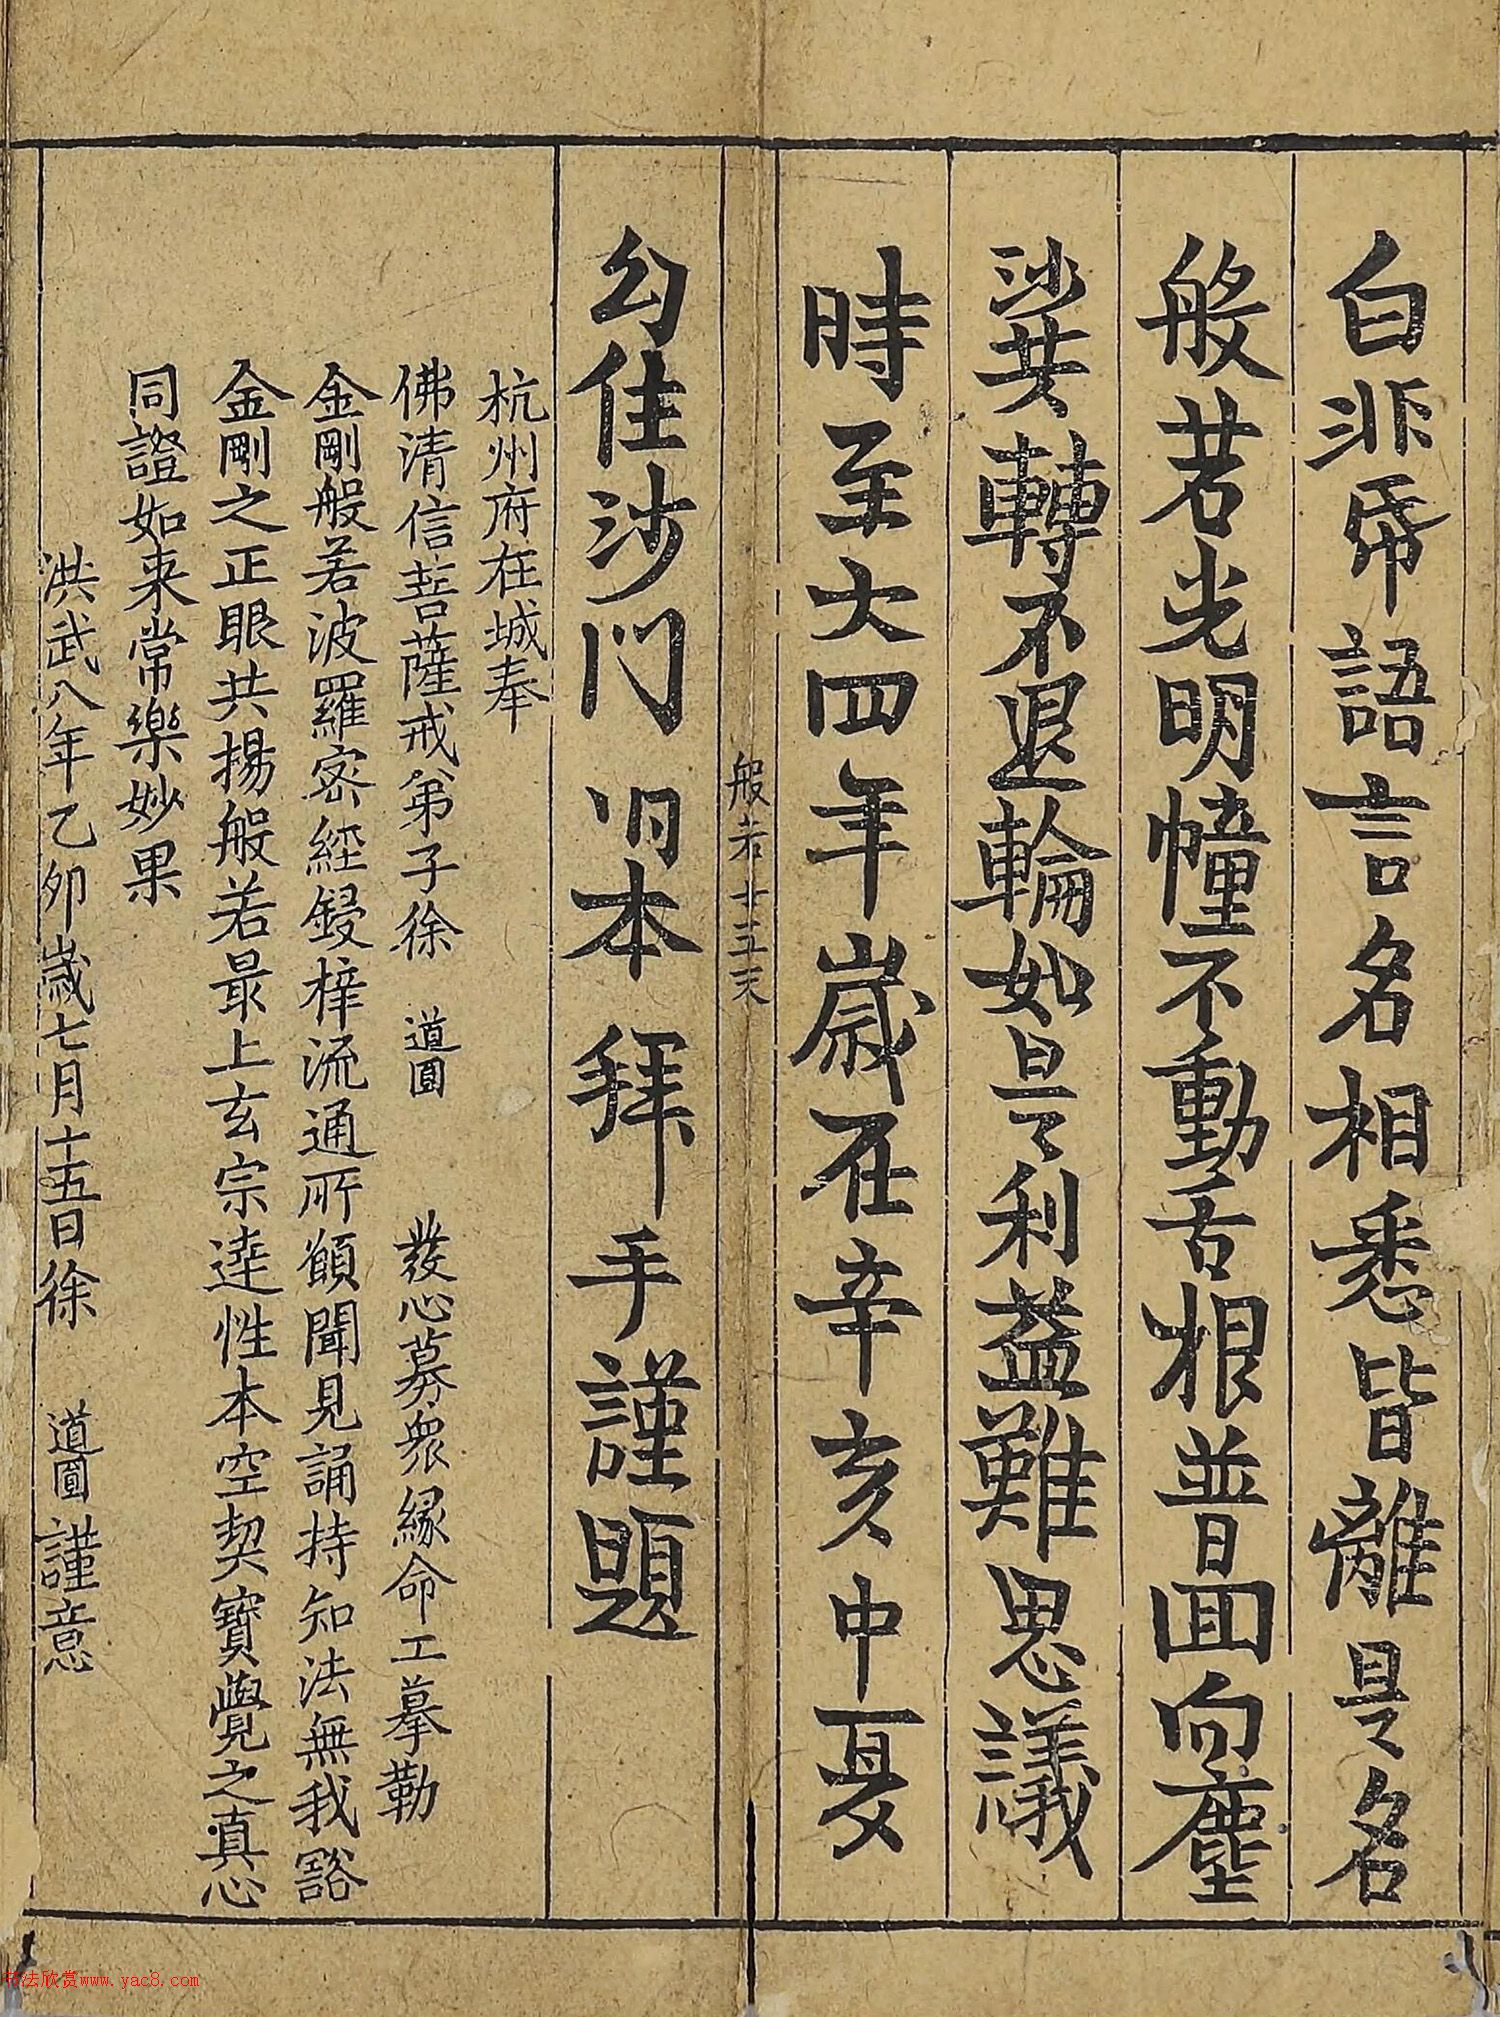 白非帝語言名相悉皆離是名
般若光明幢不動舌根普回向塵
沙共轉不退輪如是利益難思議
時至大四年歲在辛亥中夏
幻住沙門明本拜手謹題
般若十三天
杭州府在城奉
佛清信菩薩戒弟子徐 道圓 發心募衆緣命工摹勒
金剛般若波羅密經鋟梓流通所願聞見誦持知法無我豁
金剛之正眼共揚般若最上玄宗達性本空契寶覺之真心
同證如来常樂妙果
洪武八年乙卯歲七月十五日徐 道圓 謹意
书法欣赏www.yac8.com